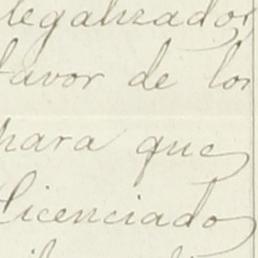 legalizador
favor de los
para que
Licenciado